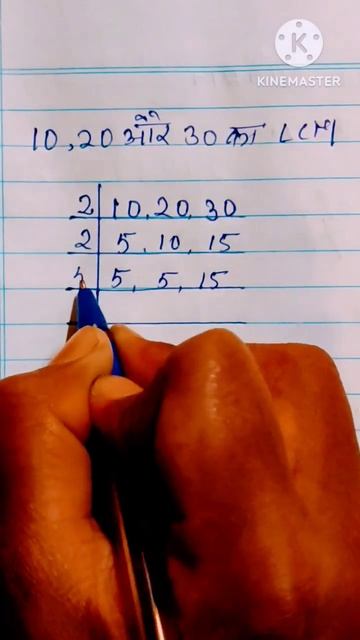 KINEMASTER
10, 20 और 30 का LCM
2 | 10, 20, 30
2 | 5, 10, 15
5, 5, 15